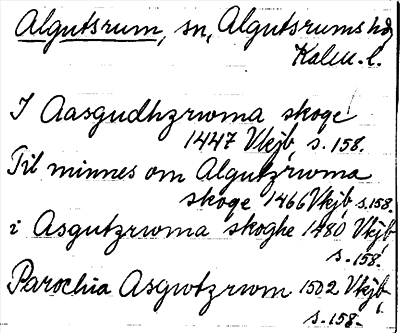 Algutsrum, sn, Algutsrums hd,
Kalm. l.
I Aasgudhzrwma skoge
1447 Vkjb, s. 158.
Til minnes om Algutzrwma
skoge 1466 Vkjb, s. 158.
i Asgutzrwma skoghe 1480 Vkjb,
s. 158.
Parochia Asgwtzrwm 1502 Vkjb,
s. 158.